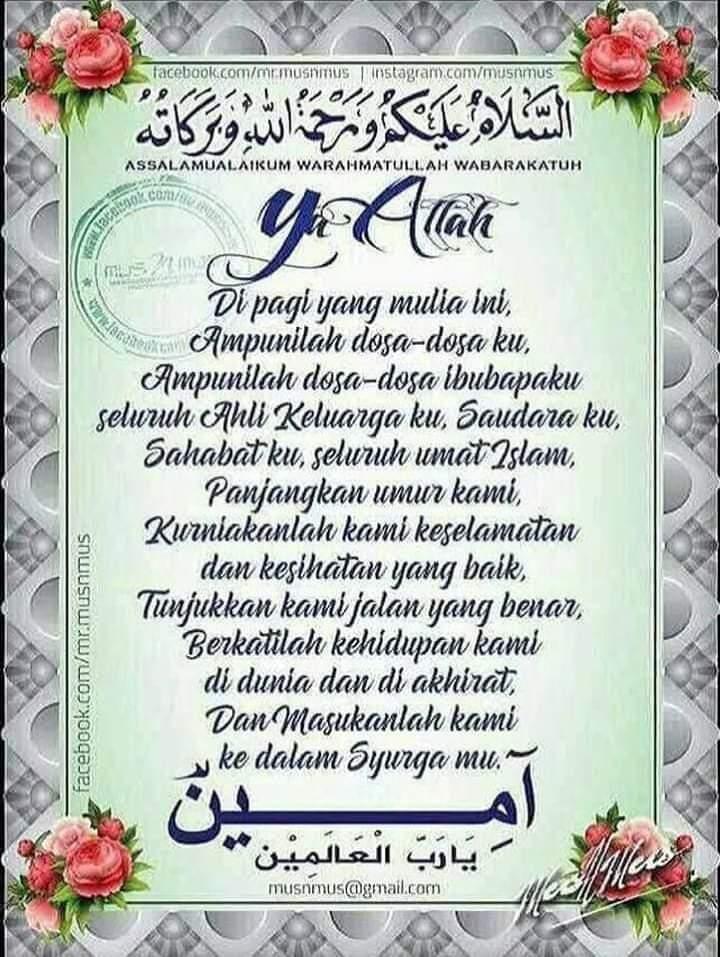 facebook.com/mr.musnmus | instagram.com/musnmus
السَّلَامُ عَلَيْكُمْ وَرَحْمَةُ اللهِ وَبَرَكَاتُهُ
ASSALAMUALAIKUM WARAHMATULLAH WABARAKATUH
Ya Allah
Di pagi yang mulia ini,
Ampunilah dosa-dosa ku,
Ampunilah dosa-dosa ibubapaku
seluruh Ahli Keluarga ku, Saudara ku,
Sahabat ku, seluruh umat Islam,
Panjangkan umur kami,
Kurniakanlah kami keselamatan
dan kesihatan yang baik,
Tunjukkan kami jalan yang benar,
Berkatilah kehidupan kami
di dunia dan di akhirat,
Dan Masukanlah kami
ke dalam Syurga mu.~
آمِيْنُ
يَارَبَّ الْعَالَمِيْن
musnmus@gmail.com
facebook.com/mr.musnmus